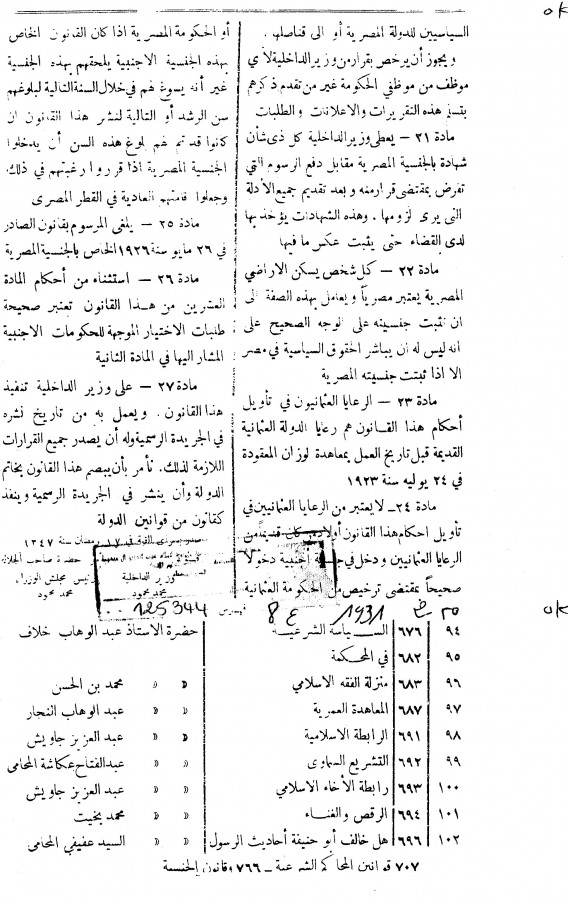 السياسيين للدولة المصرية أو الى قناصلها .
ويجوز أن يرخص بقرار من وزير الداخلية لأي
موظف من موظفي الحكومة غير من تقدم ذكرهم
بتسلم هذه التقريرات والاعلانات والطلبات
مادة ٢١ — يعطى وزير الداخلية كل ذى شأن
شهادة بالجنسية المصرية مقابل دفع الرسوم التي
تفرض بمقتضى قرار منه وبعد تقديم جميع الأدلة
التى يرى لزومها . وهذه الشهادات يؤخذ بها
لدى القضاء حتى يثبت عكس ما فيها
مادة ٢٢ — كل شخص يسكن الاراضي
المصرية يعتبر مصرياً ويعامل بهذه الصفة الى
ان تثبت جنسيته على الوجه الصحيح على
أنه ليس له أن يباشر الحقوق السياسية في مصر
الا اذا ثبتت جنسيته المصرية
مادة ٢٣ — الرعايا العثمانيون في تأويل
أحكام هذا القانون هم رعايا الدولة العثمانية
القديمة قبل تاريخ العمل بمعاهدة لوزان المعقودة
في ٢٤ يوليه سنة ١٩٢٣
مادة ٢٤ — لا يعتبر من الرعايا العثمانيين في
تأويل احكام هذا القانون أولاد من كان قديماً من
الرعايا العثمانيين ودخل في جنسية أجنبية دخولا
صحيحاً بمقتضى ترخيص من الحكومة العثمانية
أو الحكومة المصرية اذا كان القانون الخاص
بهذه الجنسية الاجنبية يلحقهم بهذه الجنسية
غير أنه يسوغ لهم في خلال السنة التالية لبلوغهم
سن الرشد أو التالية لنشر هذا القانون ان
كانوا قد تم لهم بلوغ هذه السن أن يدخلوا
الجنسية المصرية اذا قرروا رغبتهم في ذلك،
وجعلوا اقامتهم العادية في القطر المصرى
مادة ٢٥ — يلغى المرسوم بقانون الصادر
في ٢٦ مايو سنة ١٩٢٦ الخاص بالجنسية المصرية
مادة ٢٦ — استثناء من أحكام المادة
العشرين من هذا القانون تعتبر صحيحة
طلبات الاختيار الموجهة للحكومات الاجنبية
المشار اليها في المادة الثانية
مادة ٢٧ — على وزير الداخلية تنفيذ
هذا القانون . ويعمل به من تاريخ نشره
في الجريدة الرسمية وله أن يصدر جميع القرارات
اللازمة لذلك. نأمر بأن يبصم هذا القانون بخاتم
الدولة وأن ينشر في الجريدة الرسمية وينفذ
كقانون من قوانين الدولة
١٧ رمضان سنة ١٣٤٧
حضرة صاحب الجلالة
وزير الداخلية رئيس مجلس الوزراء
محمد محمود محمد محمود
125344 ع 8 1931
٩٤ ٦٧٦ السياسة الشرعية حضرة الاستاذ عبد الوهاب خلاف
٩٥ ٦٨٢ في المحكمة
٩٦ ٦٨٣ منزلة الفقه الاسلامي » » محمد بن الحسن
٩٧ ٦٨٧ المعاهدة العمرية » » عبد الوهاب النجار
٩٨ ٦٩١ الرابطة الاسلامية » » عبد العزيز جاويش
٩٩ ٦٩٢ التشريع السماوى » » عبد الفتاح عكاشة المحامى
١٠٠ ٦٩٣ رابطة الأخاء الاسلامي » » عبد العزيز جاويش
١٠١ ٦٩٤ الرقص والغناء » » محمد بخيت
١٠٢ ٦٩٦ هل خالف أبو حنيفة أحاديث الرسول » » السيد عفيفي المحامى
٧٠٧ قوانين المحاكم الشرعية — ٧٦٦ وقانون الجنسية
ok
ok